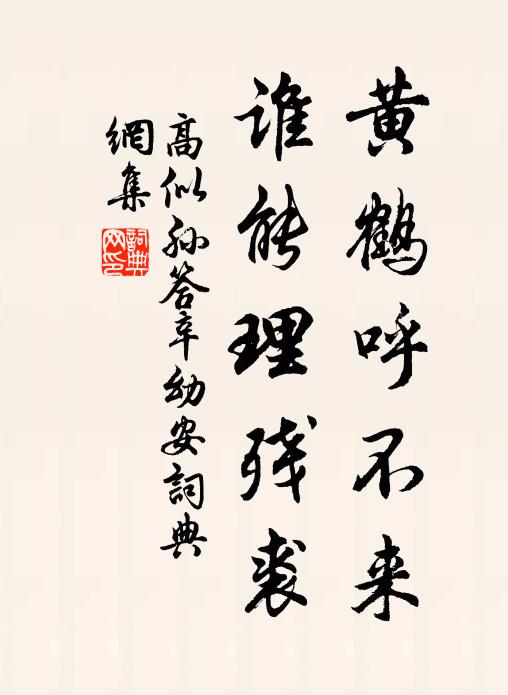 黄鹤呼不来
谁能理残裘
高似孙答辛幼安詞典
網集
詞典
网印